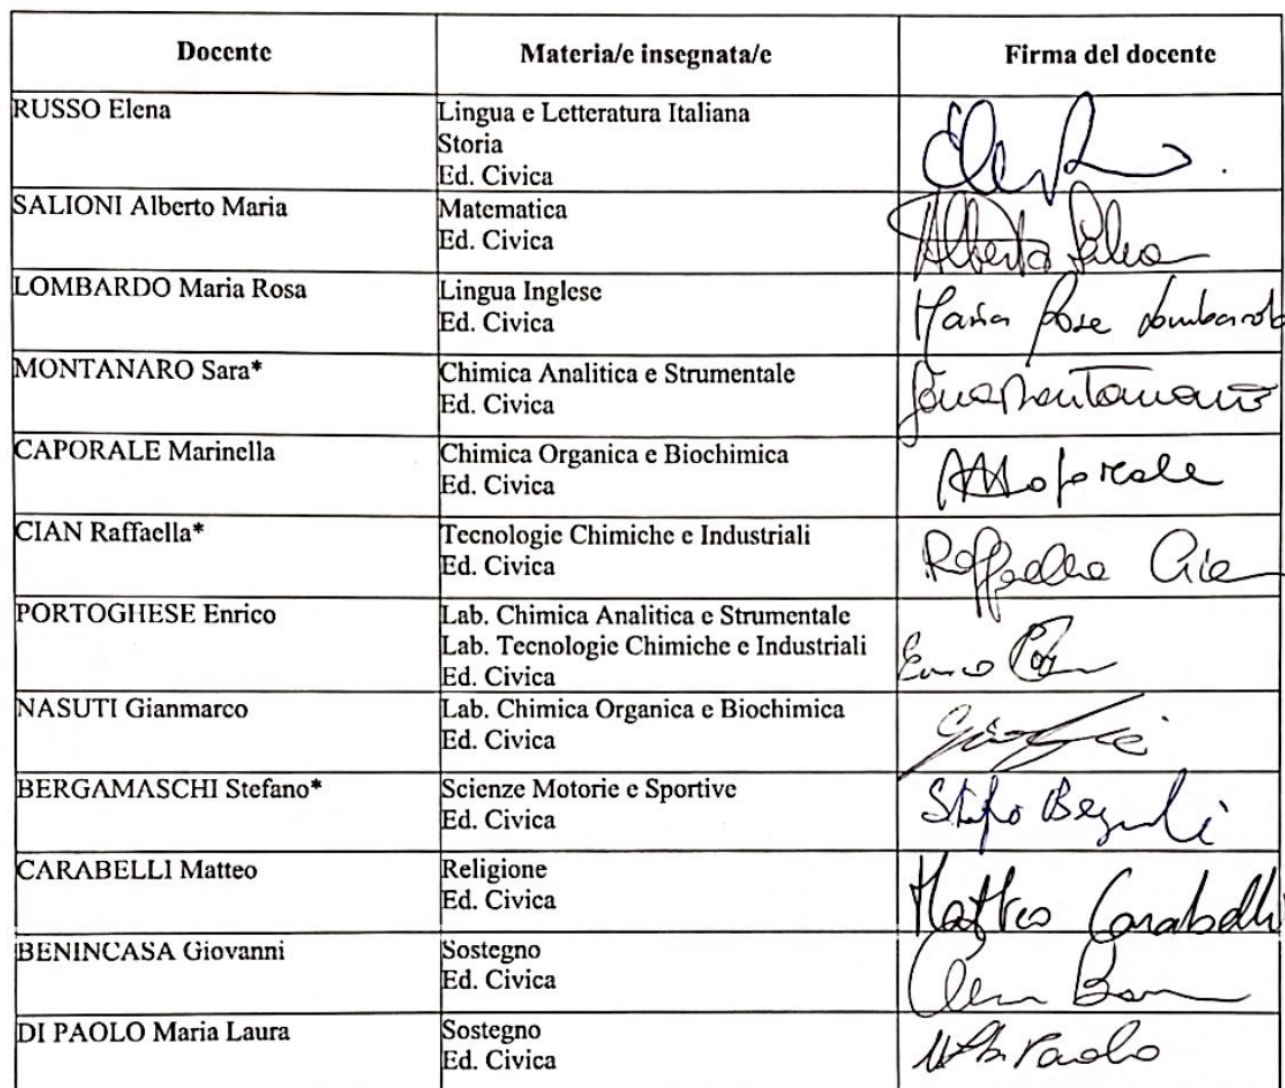 Docente Materia/e insegnata/e Firma del docente
RUSSO Elena Lingua e Letteratura Italiana
Storia
Ed. Civica
SALIONI Alberto Maria Matematica
Ed. Civica
Alberto
LOMBARDO Maria Rosa Lingua Inglese
Ed. Civica
Maria Rosa Lombardo
MONTANARO Sara* Chimica Analitica e Strumentale
Ed. Civica
Sara Montanaro
CAPORALE Marinella Chimica Organica e Biochimica
Ed. Civica
MCaporale
CIAN Raffaella* Tecnologie Chimiche e Industriali
Ed. Civica
Raffaella Cian
PORTOGHESE Enrico Lab. Chimica Analitica e Strumentale
Lab. Tecnologie Chimiche e Industriali
Ed. Civica
NASUTI Gianmarco Lab. Chimica Organica e Biochimica
Ed. Civica
BERGAMASCHI Stefano* Scienze Motorie e Sportive
Ed. Civica
CARABELLI Matteo Religione
Ed. Civica
Matteo Carabelli
BENINCASA Giovanni Sostegno
Ed. Civica
DI PAOLO Maria Laura Sostegno
Ed. Civica
Paolo